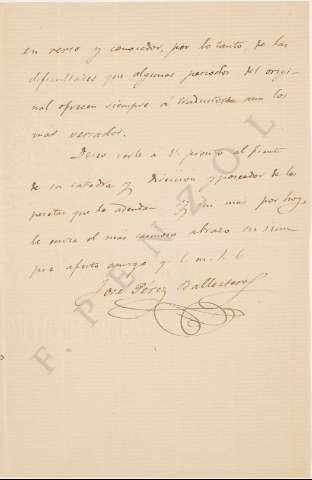 en verso y conocedor, por lo tanto, de las
dificultades que algunos periodos del origi-
nal ofrecen siempre á traductores aun los
mas versados.
Deseo verle a V. pronto al frente
de su catedra y direccion y poseedor de las
pesetas que le adeudan y sin mas por hoy,
le envia el mas cariñoso abrazo su siem
pre afecto amigo y
José Perez Ballesteros
F. PENZOL